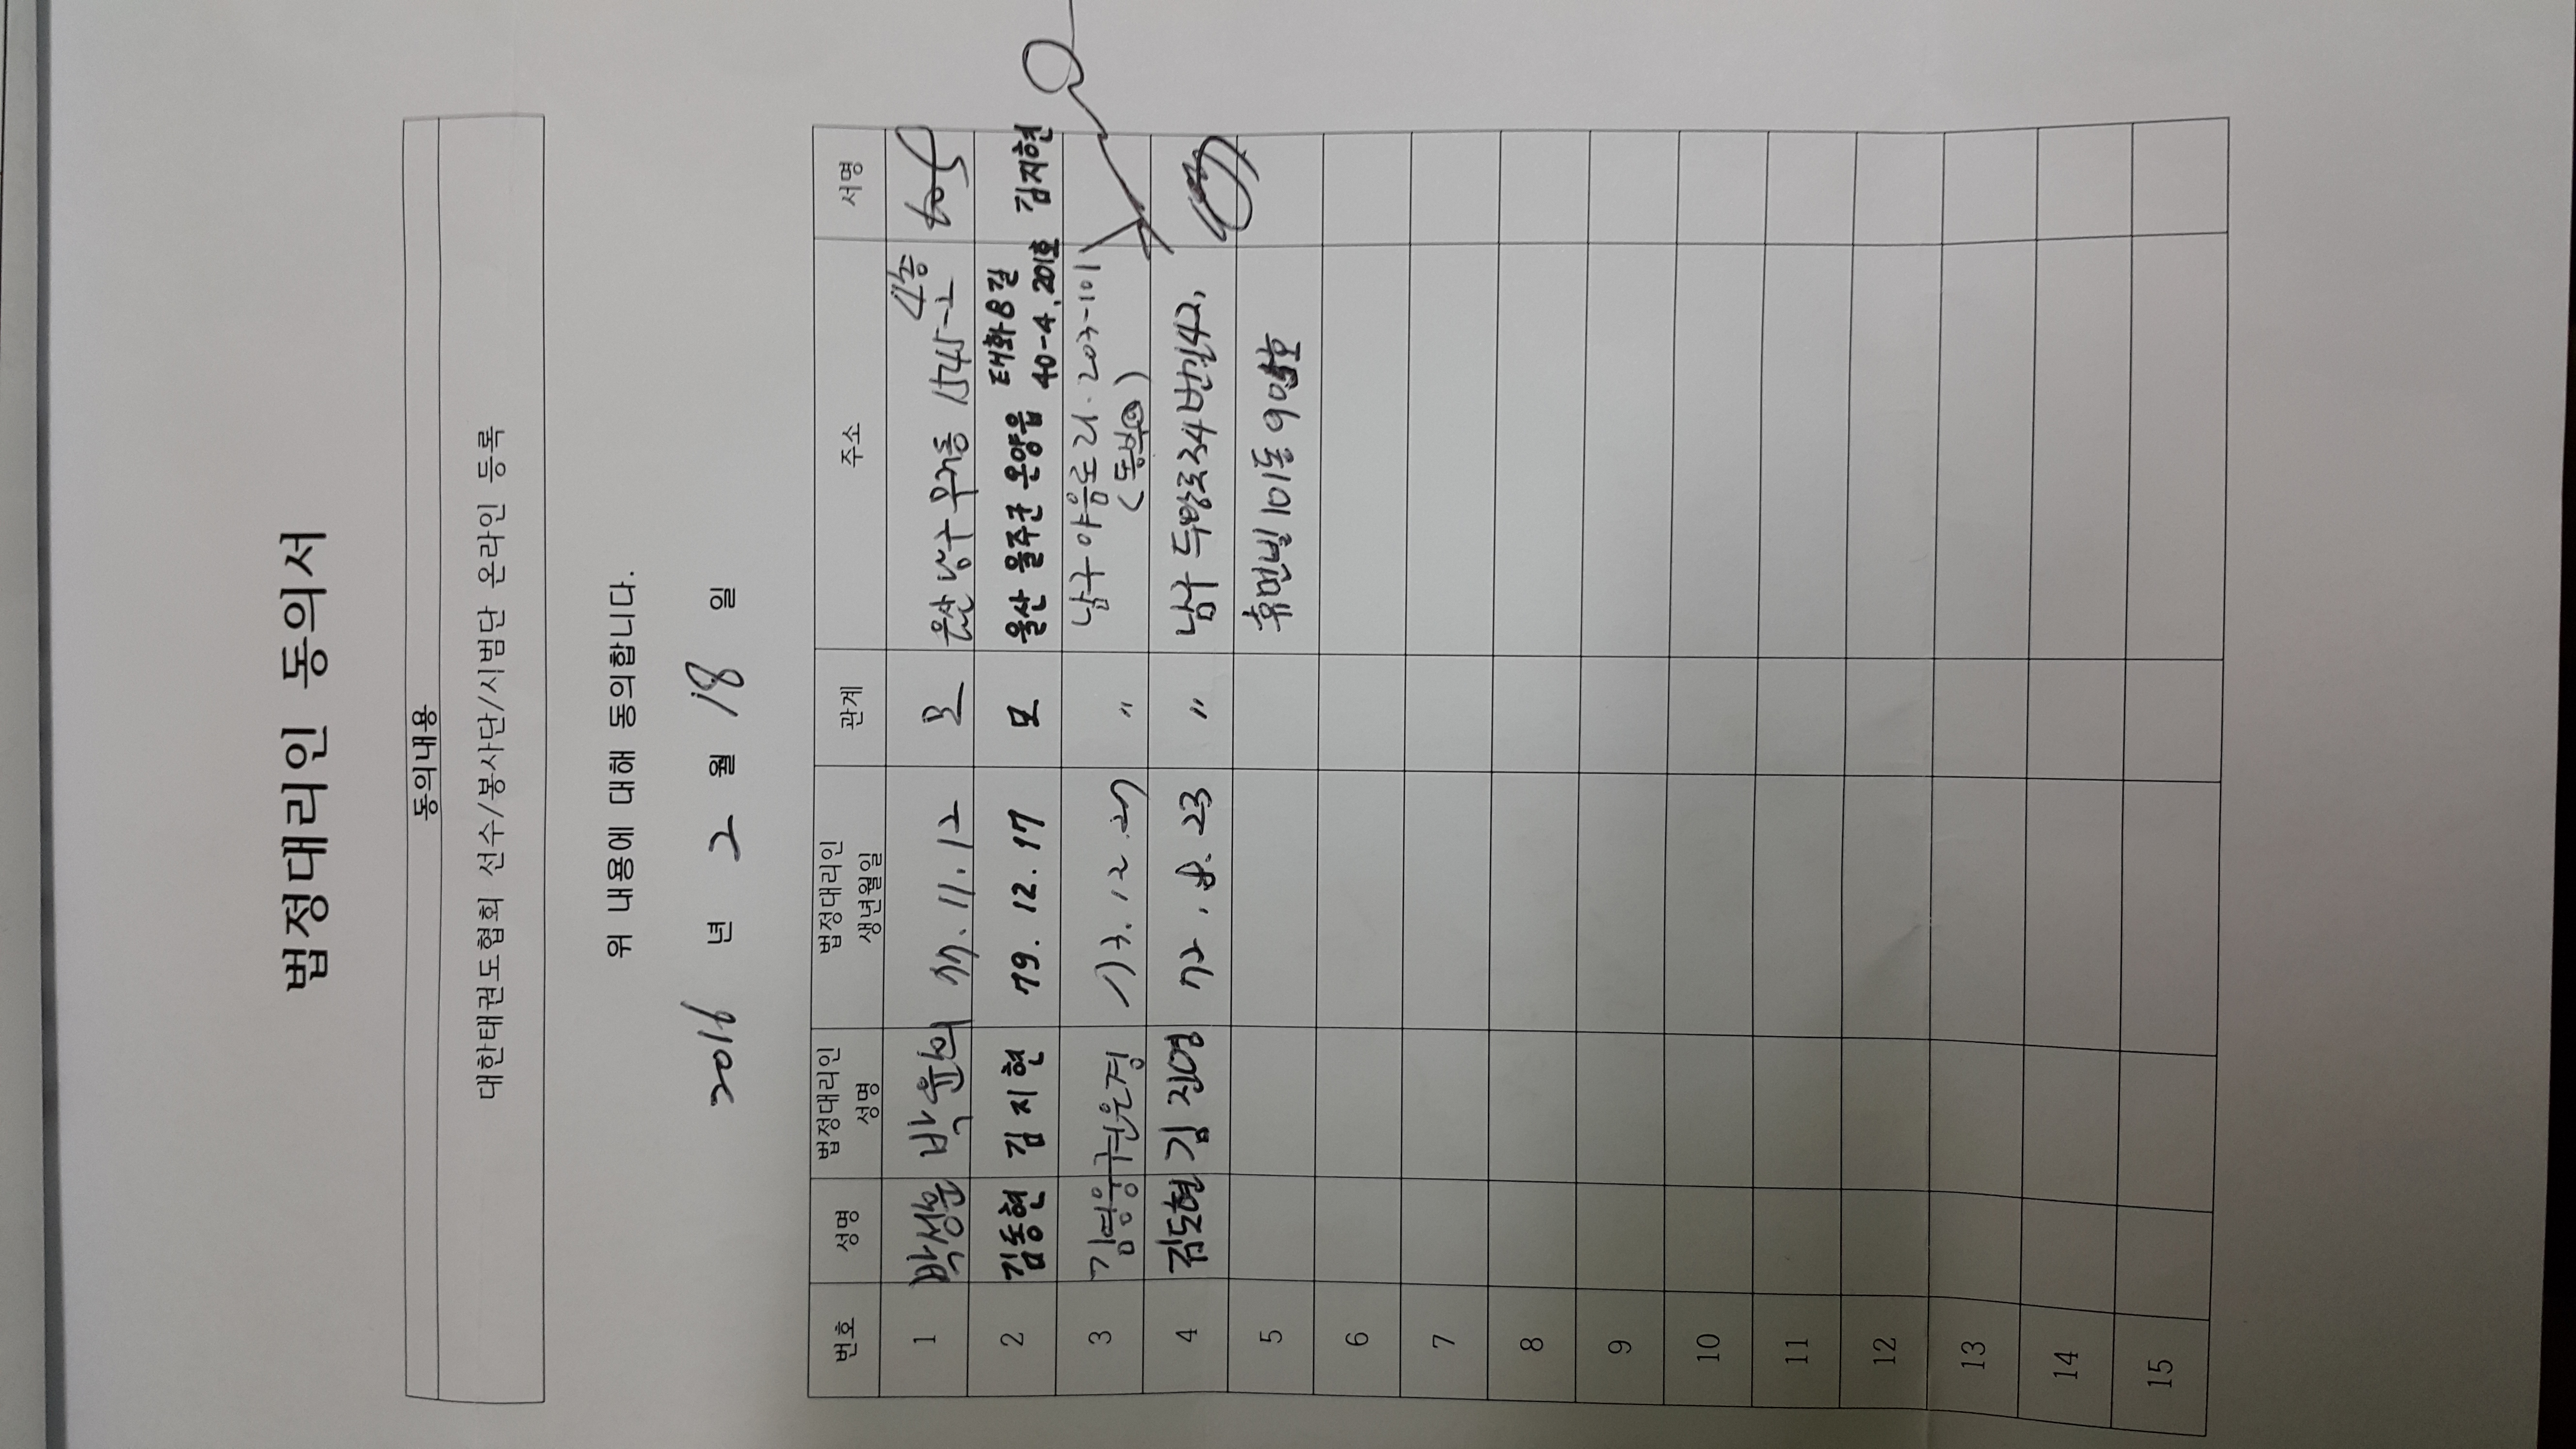 법정대리인 동의서
동의내용
대한태권도협회 선수/봉사단/시범단 온라인 등록
위 내용에 대해 동의합니다.
2016 년 2 월 18 일
번호 성명 법정대리인 성명 법정대리인 생년월일 관계 주소 서명
1 박성훈 박윤희 77.11.12 모 울산 남구 무거동 1545-2 4층
2 김동현 김지현 79.12.17 모 울산 울주군 온양읍 대화8길 40-4, 201호 김지현
3 김명웅 권은경 73.12. 〃 남구 야음로21. 203-101
4 김도현 김진영 72. 8. 23 〃 남구 두왕로334번길42,
5 휴먼빌 101동
6
7
8
9
10
11
12
13
14
15